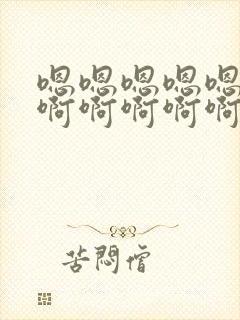 嗯嗯嗯嗯嗯
啊啊啊啊啊
苦闷僧